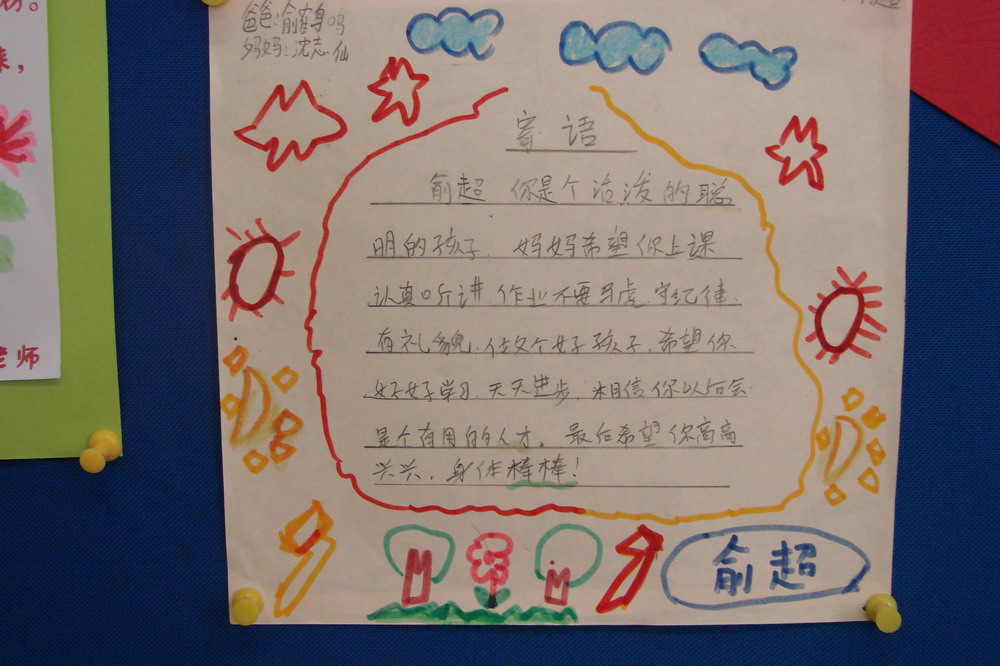 爸爸:俞鹤鸣
妈妈:沈志仙
寄语
俞超 你是个活泼的聪
明的孩子,妈妈希望你上课
认真听讲,作业不要马虎,守纪律,
有礼貌,做个好孩子,希望你
好好学习,天天进步,相信你以后会
是个有用的人才。最后希望你高高
兴兴,身体棒棒!
俞超
老师